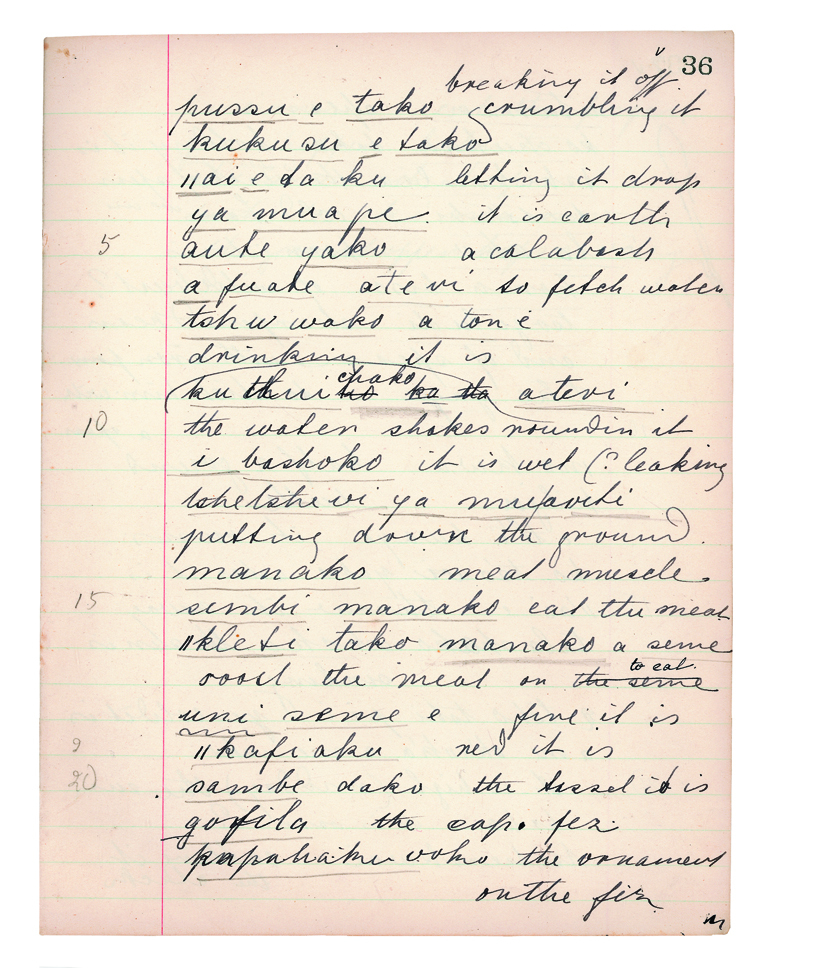 36
breaking it off
pussu e tako crumbling it
kukusu e tako
ǁai e da ku letting it drop
ya mua pe. it is earth
5 aute yako a calabash
a fuate atevi to fetch water
tshu wako a ton e
drinking it is
ku thui chako ka ta atevi
10 the water shakes round in it
i bashoko it is wet (? leaking
tshetshe vi ya mufaviti
putting down the ground.
manako meat muscle.
15 simbi manako eat the meat
ǁkleti tako manako a seme
roast the meat on the seme to eat.
uni seme e fire it is
ǁkafi aku red it is
20 sambe dako the tassel it is
gofila the cap. fez.
kapahaku woko the ornament
on the fez